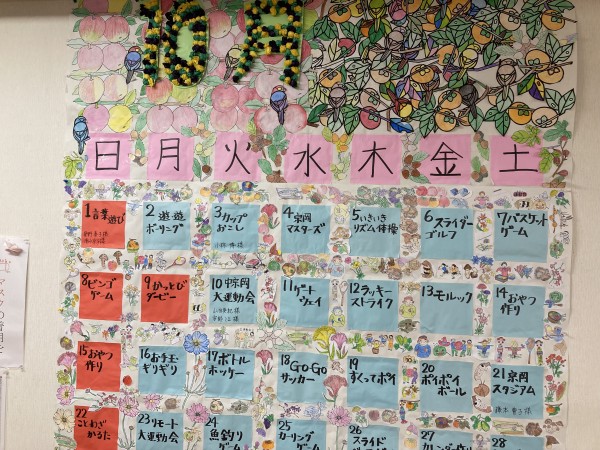 10月
日 月 火 水 木 金 土
1 言葉遊び
2 遊・遊
ボーリング
3 カップ
おこし
4 京岡
マスターズ
5 いきいき
リズム体操
6 スライダー
ゴルフ
7 バスケット
ゲーム
8 ビンゴ
ゲーム
9 かっとび
ダービー
10 中京岡
大運動会
11 ゲート
ウェイ
12 ラッキー
ストライク
13 モルック
14 おやつ
作り
15 おやつ
作り
16 お手玉
ギリギリ
17 ボトル
ホッケー
18 GO・GO
サッカー
19
すくってポイ
20
ポイポイ
ボール
21 京岡
スタジアム
22
ことわざ
かるた
23 リモート
大運動会
24
魚釣り
ゲーム
25
カーリング
ゲーム
26
スライド
27
カレンダー作り
28